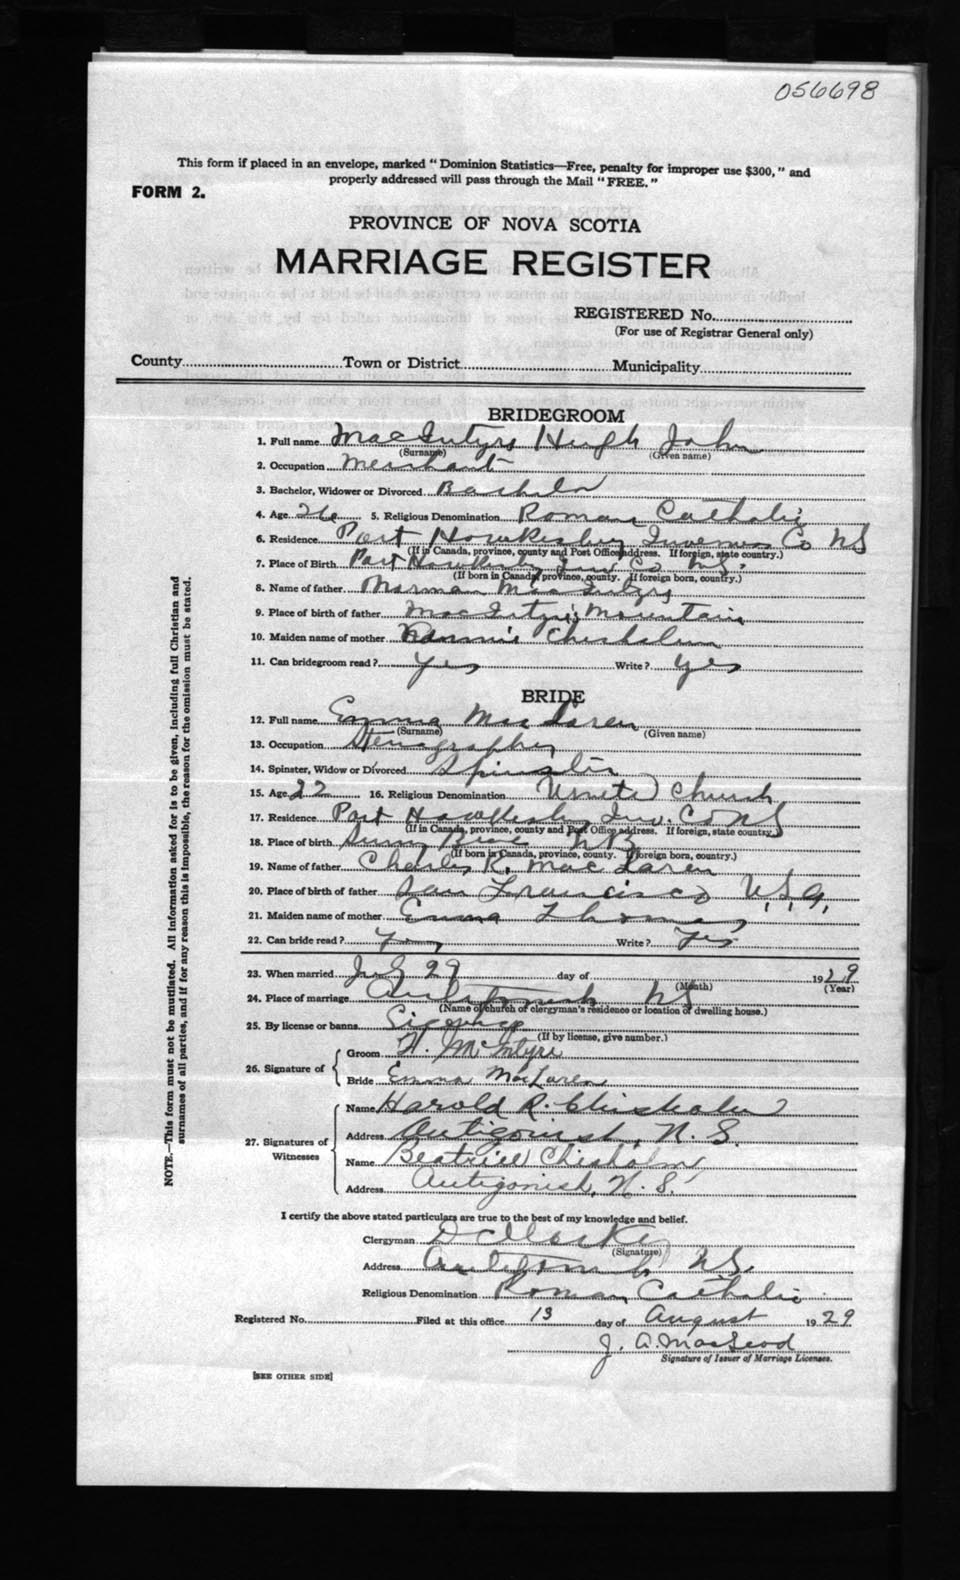 056698
This form if placed in an envelope, marked "Dominion Statistics—Free, penalty for improper use $300," and
properly addressed will pass through the Mail "FREE."
FORM 2.
PROVINCE OF NOVA SCOTIA
MARRIAGE REGISTER
REGISTERED No.
(For use of Registrar General only)
County Town or District Municipality
BRIDEGROOM
1. Full name MacIntyre Hugh John
(Surname) (Given name)
2. Occupation Merchant
3. Bachelor, Widower or Divorced Bachelor
4. Age 26 5. Religious Denomination Roman Catholic
6. Residence Port Hawkesbury Inverness Co NS
(If in Canada, province, county and Post Office address. If foreign, state country.)
7. Place of Birth Port Hawkesbury Inv Co. N.S.
(If born in Canada, province, county. If foreign born, country.)
8. Name of father Norman MacIntyre
9. Place of birth of father MacIntyre's Mountain
10. Maiden name of mother Chisholm
11. Can bridegroom read? Yes Write? yes
BRIDE
12. Full name Emma MacLaren
(Surname) (Given name)
13. Occupation Stenographer
14. Spinster, Widow or Divorced Spinster
15. Age 22 16. Religious Denomination United Church
17. Residence Port Hawkesbury Inv. Co NS
(If in Canada, province, county and Post Office address. If foreign, state country.)
18. Place of birth NB
(If born in Canada, province, county. If foreign born, country.)
19. Name of father Charles R. MacLaren
20. Place of birth of father San Francisco U.S.A.
21. Maiden name of mother Emma Thomas
22. Can bride read? Yes Write? Yes
23. When married 29 day of 1929
(Month) (Year)
24. Place of marriage Antigonish NS
(Name of church of clergyman's residence or location of dwelling house.)
25. By license or banns License
(If by license, give number.)
26. Signature of
Groom H. McIntyre
Bride Emma MacLaren
27. Signatures of Witnesses
Name Harold R. Chisholm
Address Antigonish, N.S.
Name Beatrice Chisholm
Address Antigonish, N.S.
I certify the above stated particulars are true to the best of my knowledge and belief.
Clergyman
(Signature)
Address Antigonish NS.
Religious Denomination Roman Catholic
Registered No. Filed at this office 13 day of August 1929
J. A. MacLeod
Signature of Issuer of Marriage Licenses.
[SEE OTHER SIDE]
NOTE.—This form must not be mutilated. All information asked for is to be given, including full Christian and
surnames of all parties, and if for any reason this is impossible, the reason for the omission must be stated.